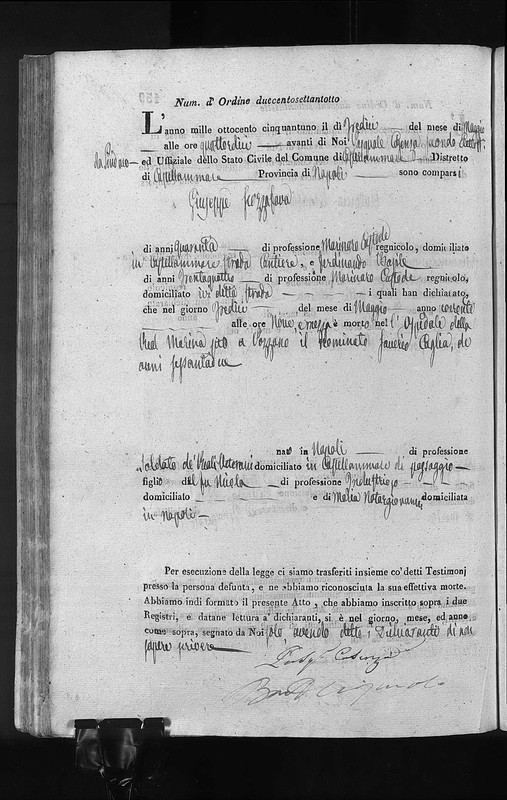 Num. d' Ordine duecentosettantotto
L'anno mille ottocento cinquantuno il dì Tredici del mese di Maggio
alle ore quattordici avanti di Noi Pasquale Cosenza
ed Uffiziale dello Stato Civile del Comune di Castellammare Distretto
di Castellammare Provincia di Napoli sono comparsi
Giuseppe
di anni quaranta di professione Marinaro Custode regnicolo, domiciliato
in Castellammare strada Cantiere, e Ferdinando
di anni Trentaquattro di professione Marinaro Custode regnicolo,
domiciliato ivi detta strada i quali han dichiarato,
che nel giorno Tredici del mese di Maggio anno corrente
alle ore Nove, e mezza è morto nel l'Ospedale della
Real Marina sito a Pozzano il nominato Saverio Caglia, di
anni sessantadue
nato in Napoli di professione
Soldato de' Reali Veterani domiciliato in Castellammare di passaggio
figlio del fu Nicola di professione Industrioso
domiciliato e di Maria Notargiovanni domiciliata
in Napoli
Per esecuzione della legge ci siamo trasferiti insieme co' detti Testimonj
presso la persona defunta, e ne abbiamo riconosciuta la sua effettiva morte.
Abbiamo indi formato il presente Atto, che abbiamo inscritto sopra i due
Registri, e datane lettura a' dichiaranti, si è nel giorno, mese, ed anno
come sopra, segnato da Noi solo avendo detto i Dichiaranti di non
sapere scrivere
Pasq.e Cosenza